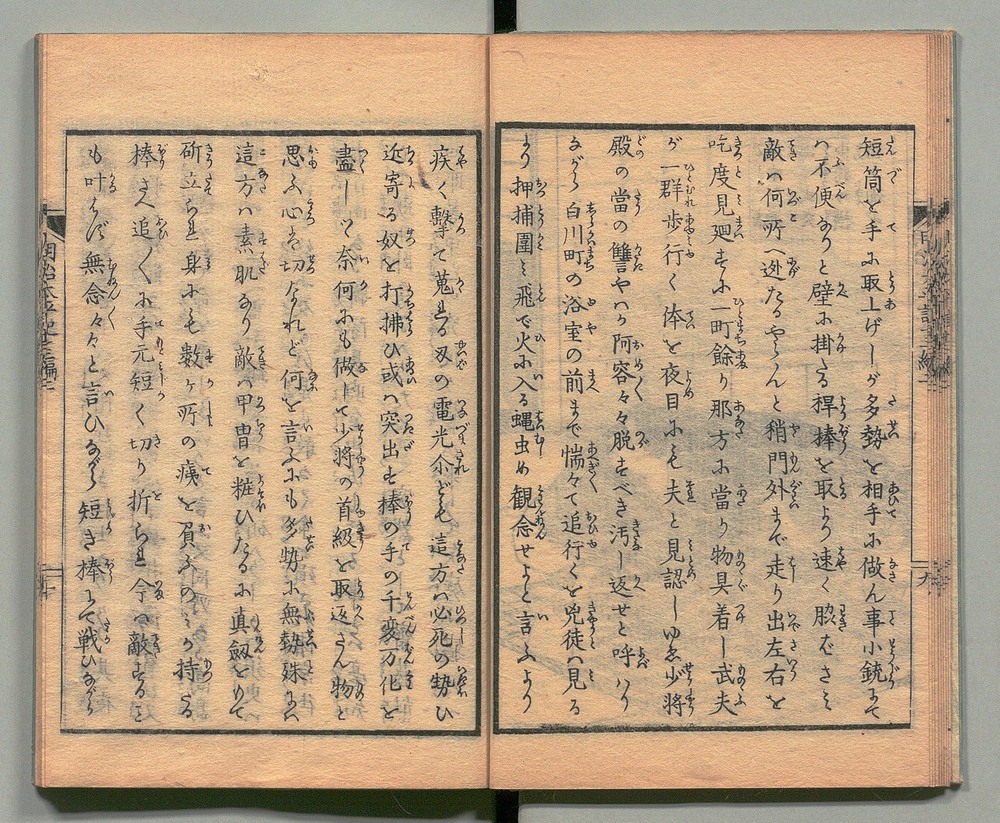 短筒を手に取上げしが多勢を相手に做ん事小銃にて
ハ不便なりと壁に掛たる桿捧を取より速く脇ばさみ
敵ハ何所へ迯たるやらんと稍門外まで走り出左右を
吃度見廻すに一町餘り那方に當り物具着し武夫
が一群歩行く体を夜目にも夫と見認しゆゑ少將
殿の當の讐やハか阿容々々脱すべき汚し返せと呼ハり
ながら白川町の浴室の前まで惴々て追行くを兇徒ハ見る
より押捕圍み飛で火に入る蝿虫め観念せよと言ふより
疾く撃て蒐る刄の電光尓ども這方ハ必死の勢ひ
近寄る奴を打拂ひ或ハ突出す棒の手の千変万化を
盡しつ奈何にも做して少將の首級を取返さん物と
思ふ心ハ切なれど何を言ふにも多勢に無勢殊にハ
這方ハ素肌なり敵ハ甲冑を粧ひたるに真劔をもて
斫立られ身にも數ヶ所の痍を負ふのミか持たる
棒さへ追々に手元短く切り折られ今ハ敵すること
も叶はず無念々々と言ひながら短き棒にて戦ひながら